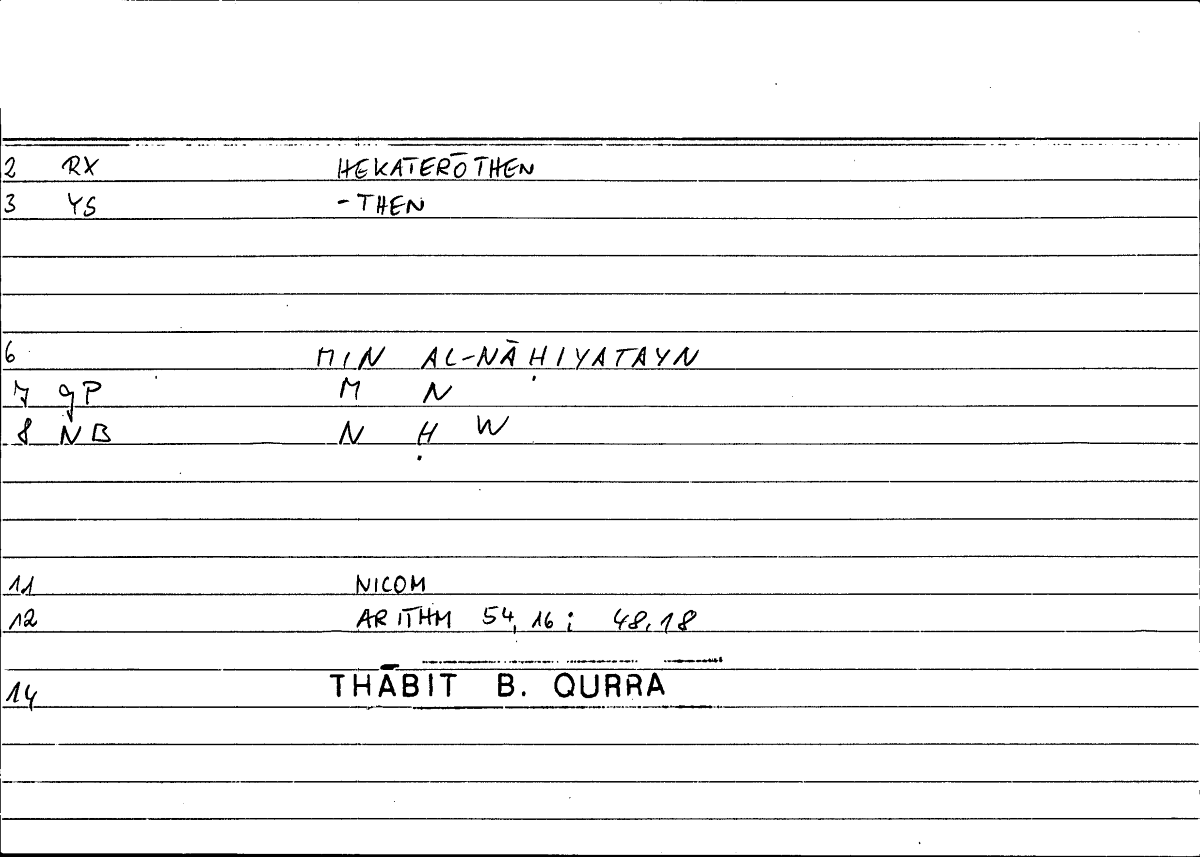 2 RX HEKATERŌTHEN
3 YS -THEN
6 MIN AL-NĀḤIYATAYN
7 gP M N
8 NB N Ḥ W
11 NICOM
12 ARITHM 54,16; 48,18
14 THĀBIT B. QURRA